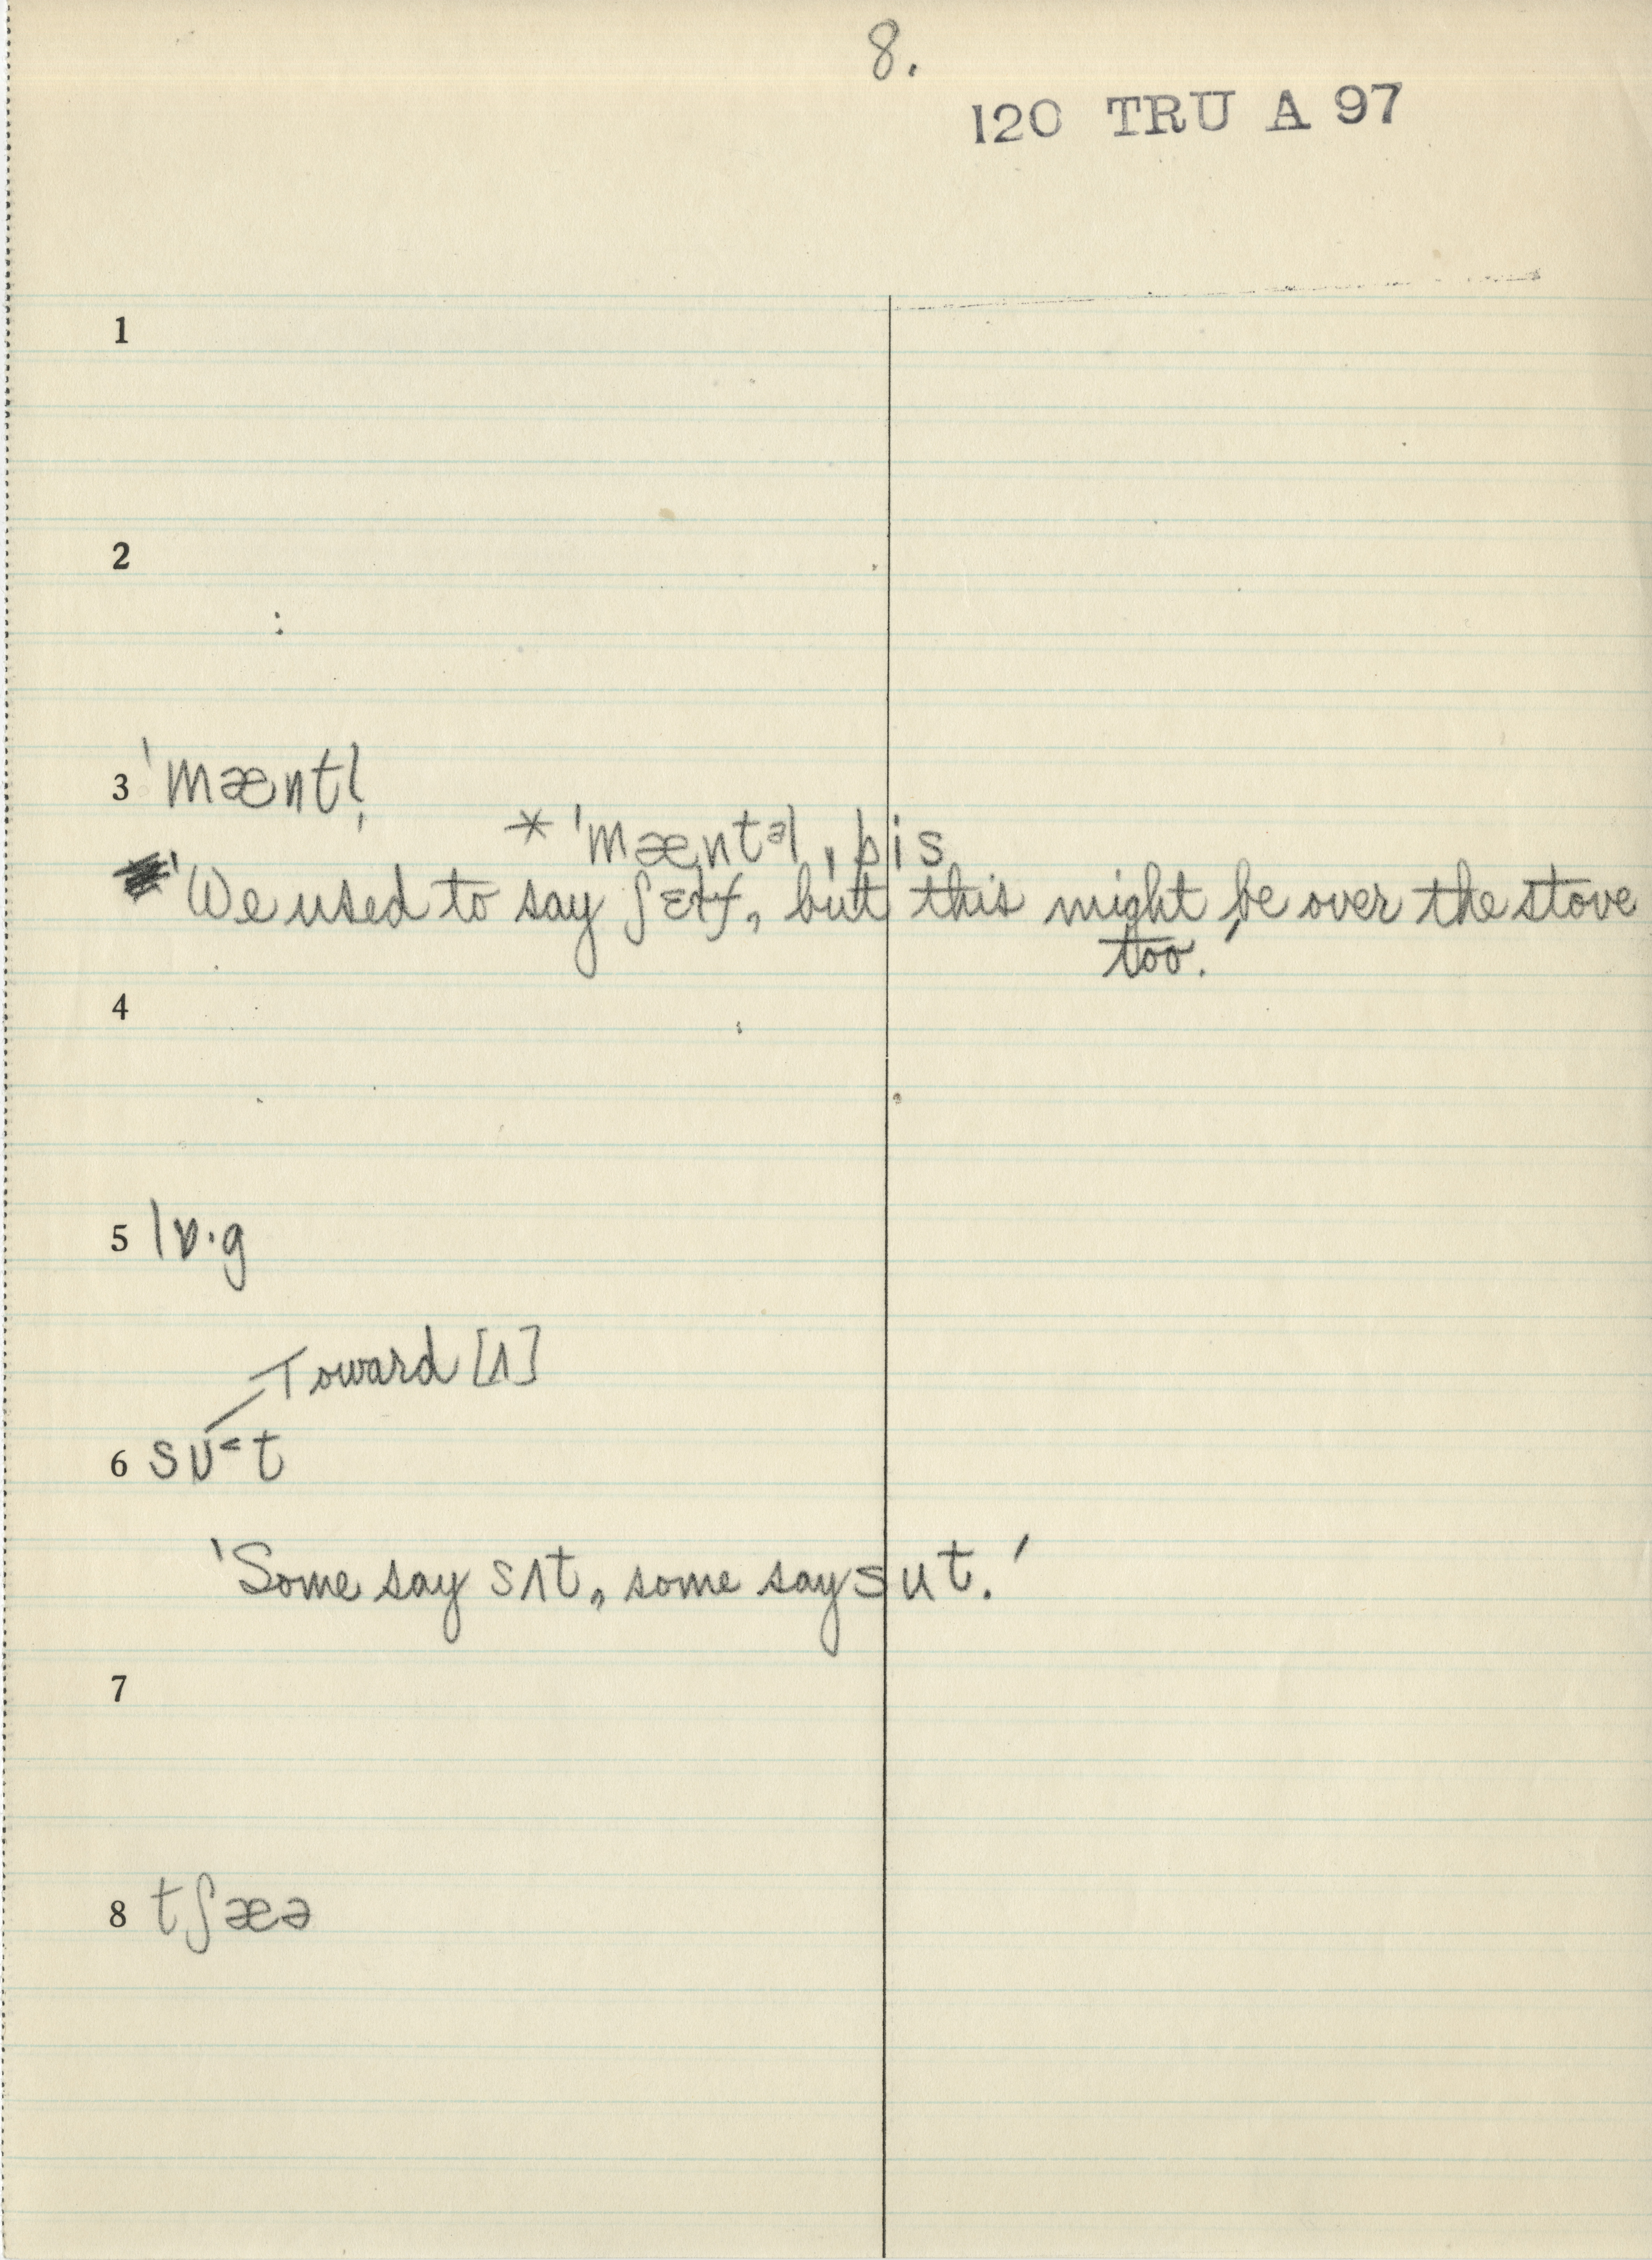 8.
120 TRU A 97
1
2
3 ˈmæntl̩
* ˈmæntəl ˌpis
'We used to say ʃɛɫf, but this might be over the stove
too.'
4
5 lɒ·g
Toward [ʌ]
6 sʊ˂t
'Some say sʌt, some say sut.'
7
8 tʃæə